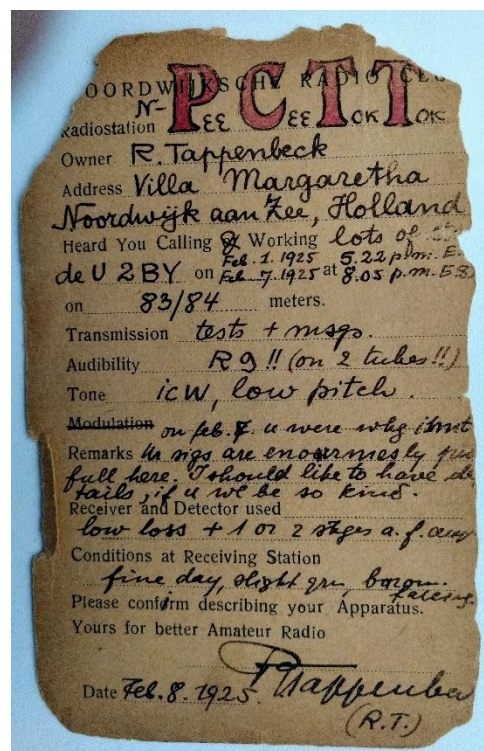 OORDWIJKSCHE RADIO CLU
N-PEE CEE TOK TOK
Radiostation
Owner R. Tappenbeck
Address Villa Margaretha
Noordwijk aan Zee, Holland
Heard You Calling Working lots of
Feb. 1. 1925 5.22 p.m. E.
de U 2BY on Feb. 7. 1925 at 8.05 p.m. E.S.
on 83/84 meters.
Transmission tests + msgs.
Audibility R9!! (on 2 tubes!!)
Tone icw, low pitch.
Modulation on feb. 7. u were wkg
Remarks Ur sigs are enourmesly
full here. I should like to have de
tails, if u wl be so kind.
Receiver and Detector used
low loss + 1 or 2 stges a.f.
Conditions at Receiving Station
fine day, slight qrn, barom.
falling.
Please confirm describing your Apparatus.
Yours for better Amateur Radio
Date Feb. 8. 1925. RTappenbe
(R.T.)